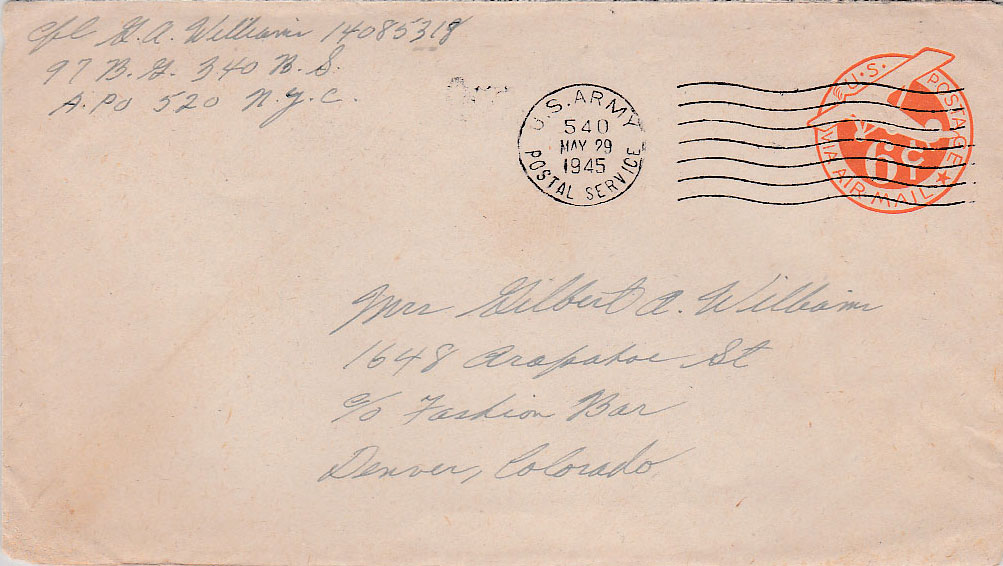 Cpl G. A. Williams 14085318
97 B. G. 340 B. S.
A. P.O 520 N.Y.C.
U.S. ARMY
540
MAY 29
1945
POSTAL SERVICE
U.S. POSTAGE
6¢
VIA AIR MAIL
Mrs Gilbert A. Williams
1648 Arapahoe St
c/o Fashion Bar
Denver, Colorado